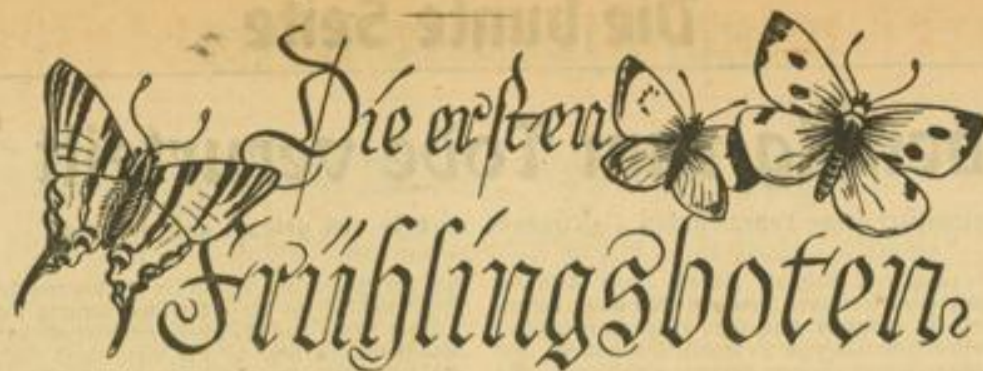 Die ersten
Frühlingsboten